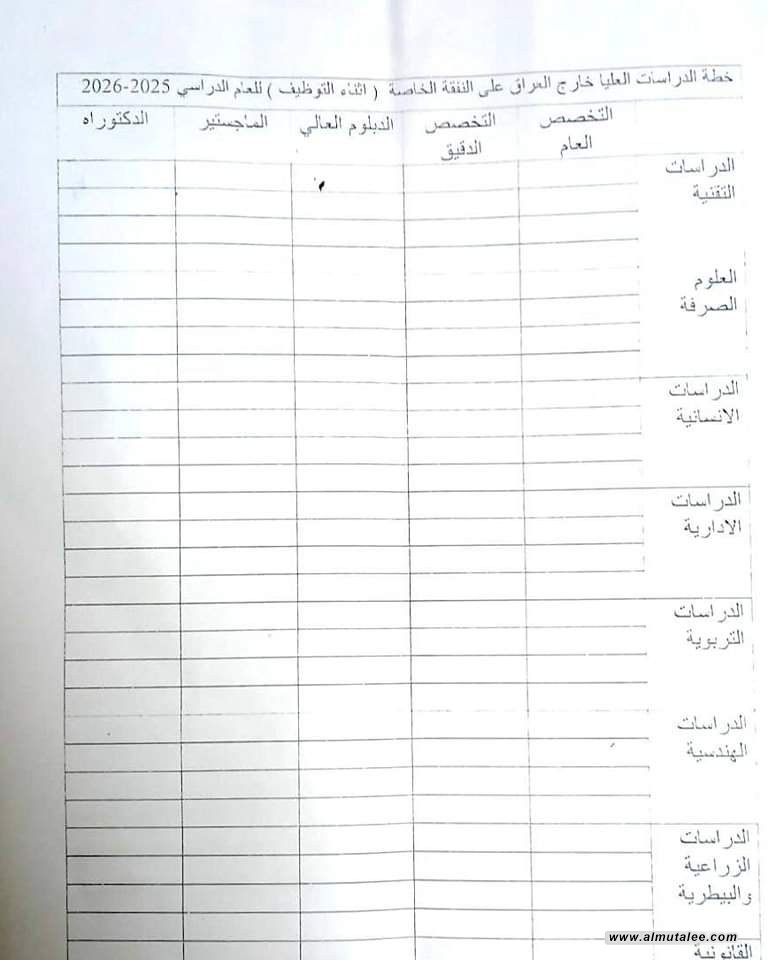 خطة الدراسات العليا خارج العراق على النفقة الخاصة ( اثناء التوظيف ) للعام الدراسي 2025-2026
التخصص العام
التخصص الدقيق
الدبلوم العالي
الماجستير
الدكتوراه
الدراسات
التقنية
العلوم
الصرفة
الدراسات
الانسانية
الدراسات
الادارية
الدراسات
التربوية
الدراسات
الهندسية
الدراسات
الزراعية
والبيطرية
القانونية
www.almutalee.com